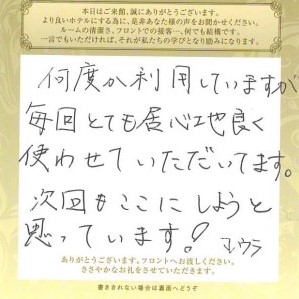 本日はご来館、誠にありがとうございます。
より良いホテルにする為に、是非あなた様の声をお聞かせください。
ルームの清潔さ、フロントでの接客…、何でも結構です。
一言でもいただければ、それが私たちの学びとなり励みになります。
何度か利用していますが
毎回とても居心地良く
使わせていただいてます。
次回もここにしようと
思っています! マウラ
ありがとうございます。フロントへお渡しください。
ささやかなお礼をさせていただきます。
書ききれない場合は裏面へどうぞ